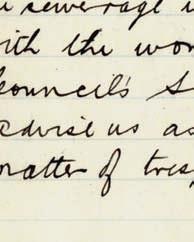 sewerage
with the wor
Council's S
advise us as
matter of tres